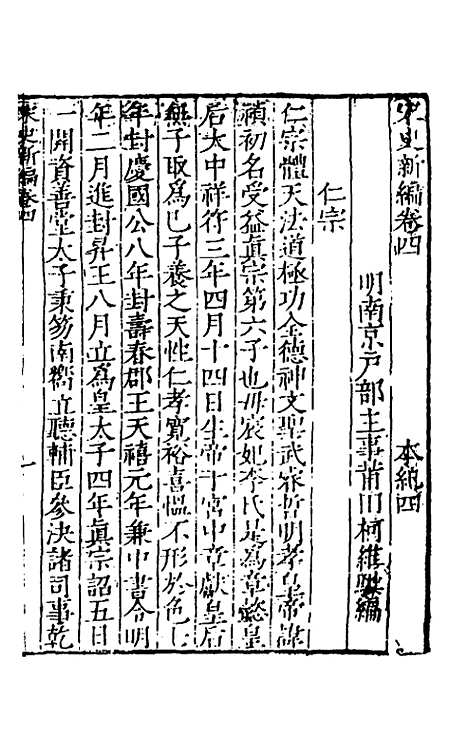 宋史新編卷四　本紀四
明南京戶部主事莆田柯維騏編
仁宗
仁宗體天法道極功全德神文聖武睿哲明孝皇帝諱
禎初名受益真宗第六子也母宸妃李氏是為章懿皇
后大中祥符三年四月十四日生帝于宮中章獻皇后
無子取為己子養之天性仁孝寬裕喜慍不形於色七
年封慶國公八年封壽春郡王天禧元年兼中書令明
年二月進封昇王八月立為皇太子四年真宗詔五日
一開資善堂太子秉笏南嚮立聽輔臣參決諸司事乾
宋史新編卷四　一